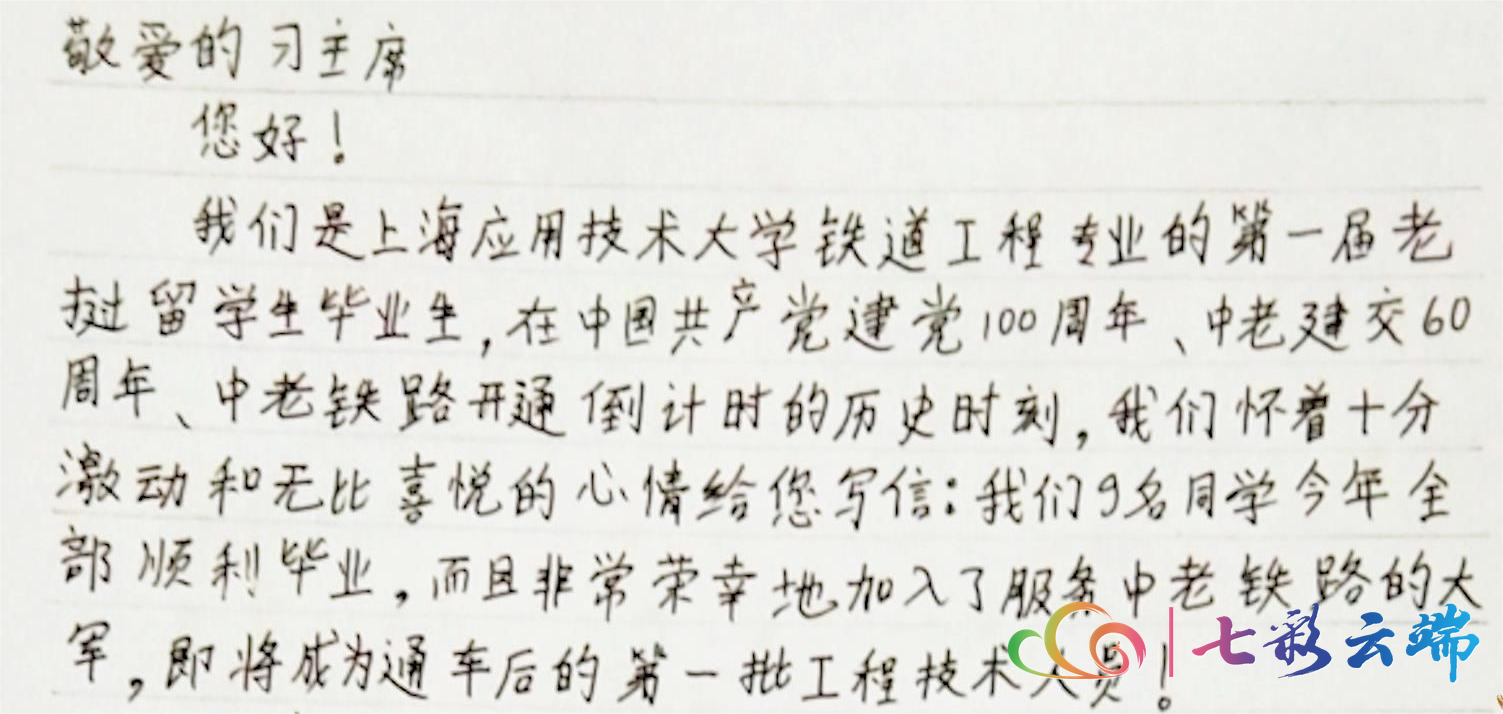 敬爱的习主席
您好！
我们是上海应用技术大学铁道工程专业的第一届老
挝留学生毕业生，在中国共产党建党100周年、中老建交60
周年、中老铁路开通倒计时的历史时刻，我们怀着十分
激动和无比喜悦的心情给您写信：我们9名同学今年全
部顺利毕业，而且非常荣幸地加入了服务中老铁路的大
军，即将成为通车后的第一批工程技术人员！
七彩云端